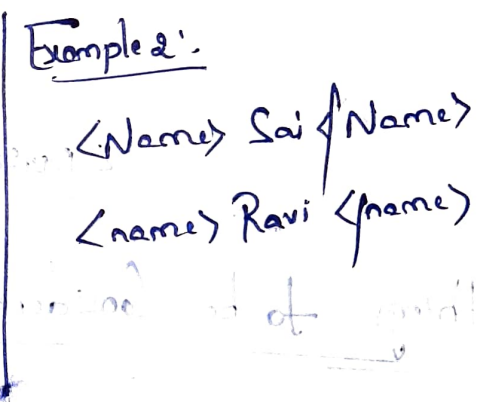 Example 2:
<Name> Sai </Name>
<name> Ravi </name>